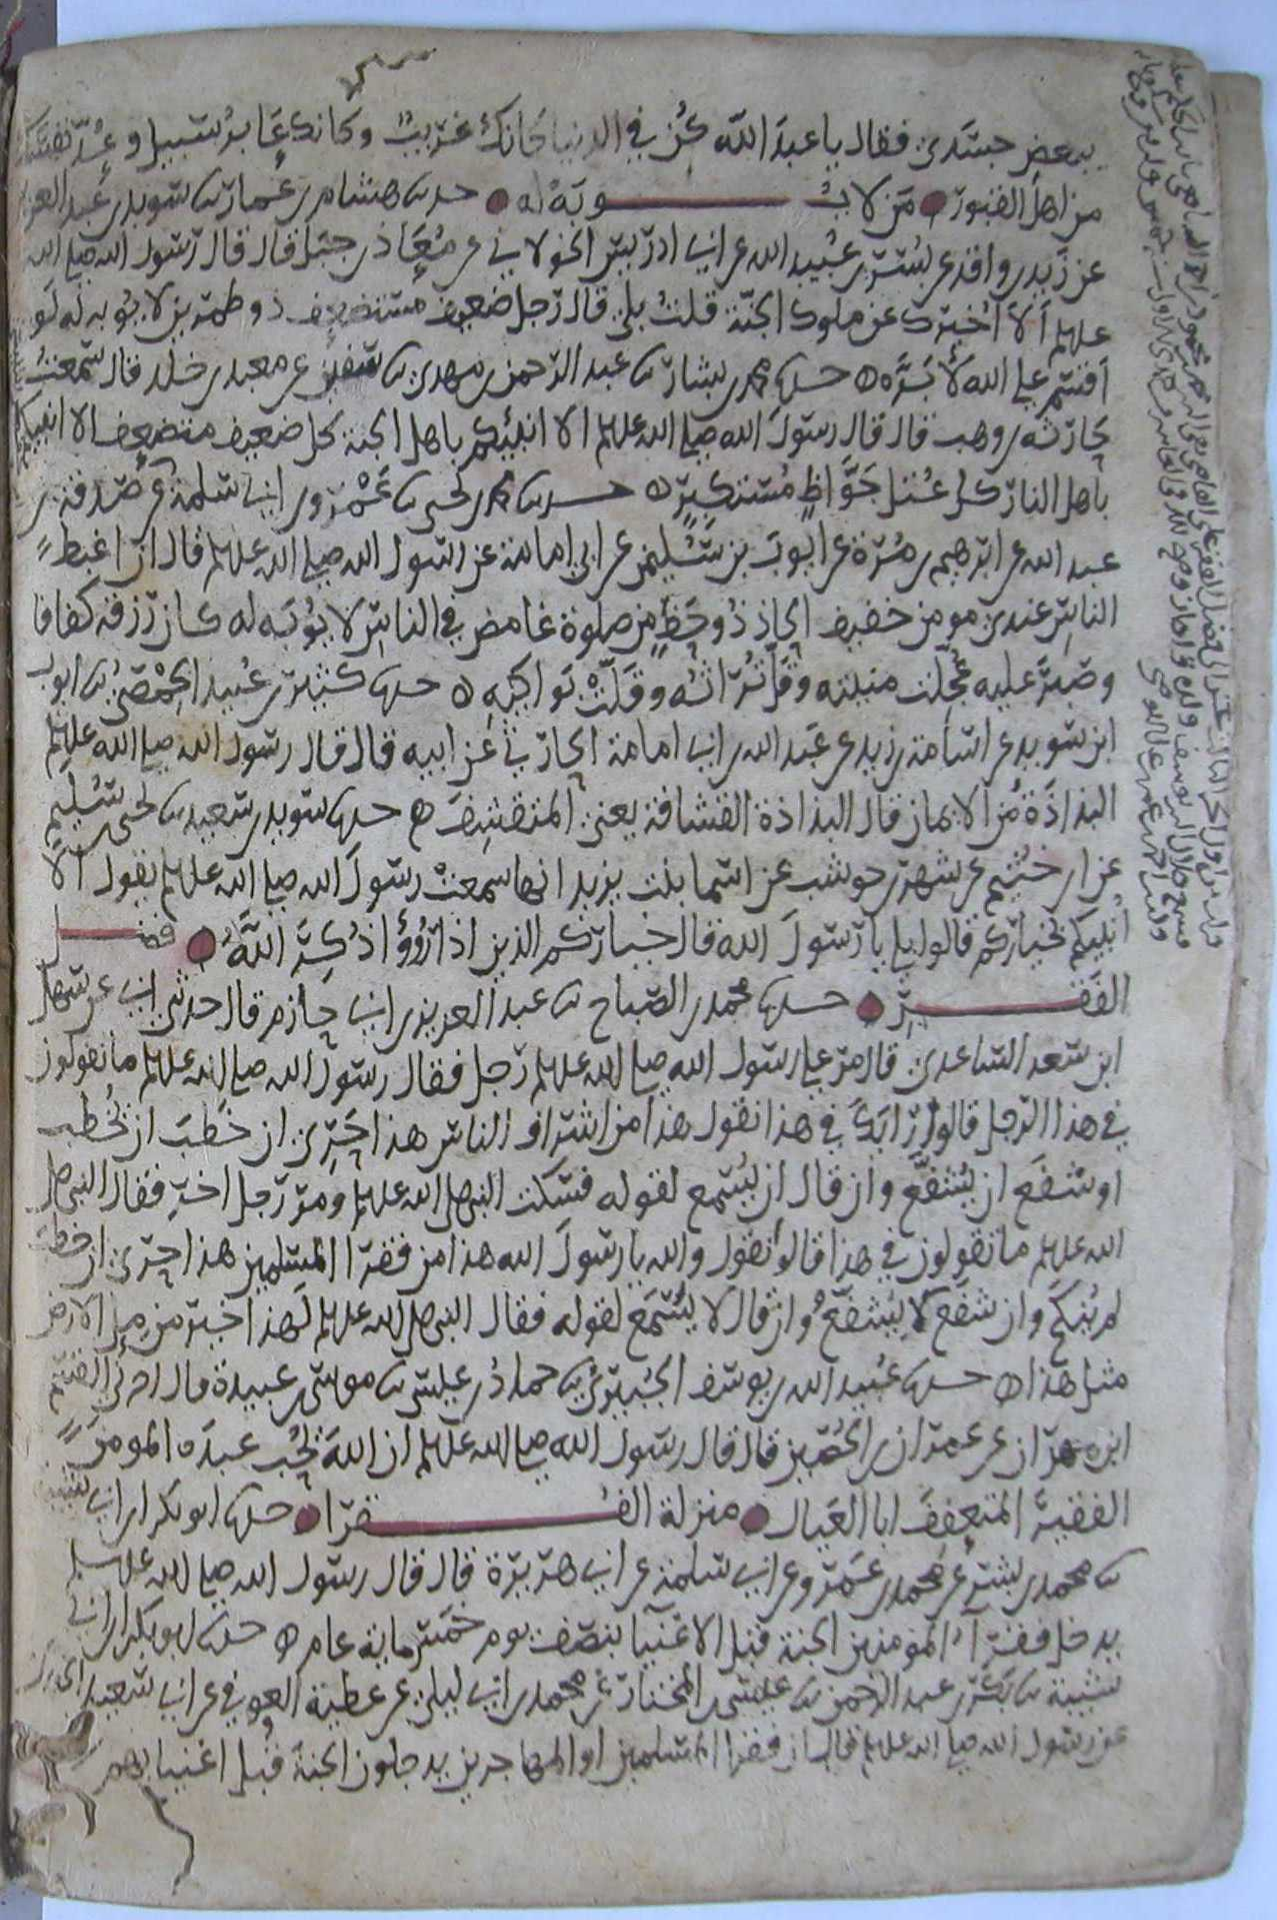 ببعض جسدي فقال يا عبد الله كن في الدنيا كانك غريب وكانك عابر سبيل وعد نفسك
من اهل القبور من لا يوبه له حدثنا هشام بن عمار ثنا سويد بن عبد العزيز
عن زيد بن واقد عن بسر بن عبيد الله عن ابي ادريس الخولاني عن معاذ بن جبل قال قال رسول الله صلى الله
عليه وسلم ألا اخبرك عن ملوك الجنة قلت بلى قال رجل ضعيف مستضعف ذو طمرين لا يوبه له لو
اقسم على الله لأبره حدثنا محمد بن بشار ثنا عبد الرحمن بن مهدي ثنا سفين عن معبد بن خلد قال سمعت
حارثه بن وهب قال قال رسول الله صلى الله عليه وسلم الا انبئكم باهل الجنة كل ضعيف متضعف الا انبيكم
باهل النار كل عتل جواظ مستكبر حدثنا محمد بن يحيى ثنا عمرو بن ابي سلمة عن صدقة بن
عبد الله عن ابرهيم بن مرة عن ايوب بن سليمن عن ابي امامة عن رسول الله صلى الله عليه وسلم قال ان اغبط
الناس عندي مومن خفيف الحاذ ذو حظ من صلوة غامض في الناس لا يوبه له كان رزقه كفافا
وصبر عليه عجلت منيته وقل تراثه وقلت بواكيه حدثنا كثير بن عبيد الحمصي ثنا ايوب
ابن سويد عن اسامة بن زيد عن عبد الله بن ابي امامة الحارثي عن ابيه قال قال رسول الله صلى الله عليه وسلم
البذاذة من الايمان قال البذاذة القشافة يعني المتقشف حدثنا سويد بن سعيد ثنا يحيى بن سليم
عن ابن خثيم عن شهر بن حوشب عن اسما بنت يزيد انها سمعت رسول الله صلى الله عليه وسلم يقول الا
انبيكم بخياركم قالوا بلى يا رسول الله قال خياركم الذين اذا رؤوا ذكر الله فضل
الفقر حدثنا محمد بن الصباح ثنا عبد العزيز بن ابي حازم قال حدثني ابي عن سهل
ابن سعد الساعدي قال مر على رسول الله صلى الله عليه وسلم رجل فقال رسول الله صلى الله عليه وسلم ما تقولون
في هذا الرجل قالوا رايك في هذا نقول هذا من اشراف الناس هذا حري ان خطب ان يخطب
او شفع ان يشفع وان قال ان يستمع لقوله فسكت النبي صلى الله عليه وسلم ومر رجل اخر فقال النبي صلى
الله عليه وسلم ما تقولون في هذا قالوا نقول والله يا رسول الله هذا من فقرا المسلمين هذا حري ان خطب
لم ينكح وان شفع لا يشفع وان قال لا يستمع لقوله فقال النبي صلى الله عليه وسلم لهذا خير من مل الارض
مثل هذا حدثنا عبيد الله بن يوسف الجبيري ثنا حماد بن عيسى ثنا موسى بن عبيدة قال اخبرني القسم
ابن مهران عن عمران بن الحصين قال قال رسول الله صلى الله عليه وسلم ان الله يحب عبده المومن
الفقير المتعفف ابا العيال منزلة الفقرا حدثنا ابو بكر بن ابي شيبة
ثنا محمد بن بشر عن محمد بن عمرو عن ابي سلمة عن ابي هريرة قال قال رسول الله صلى الله عليه وسلم
يدخل فقرآء المومنين الجنة قبل الاغنيا بنصف يوم خمس ماية عام حدثنا ابو بكر بن ابي
شيبة ثنا بكر بن عبد الرحمن ثنا عيسى بن المختار عن محمد بن ابي ليلى عن عطية العوفي عن ابي سعيد الخدري
عن رسول الله صلى الله عليه وسلم قال ان فقرا المسلمين او المهاجرين يدخلون الجنة قبل اغنيايهم